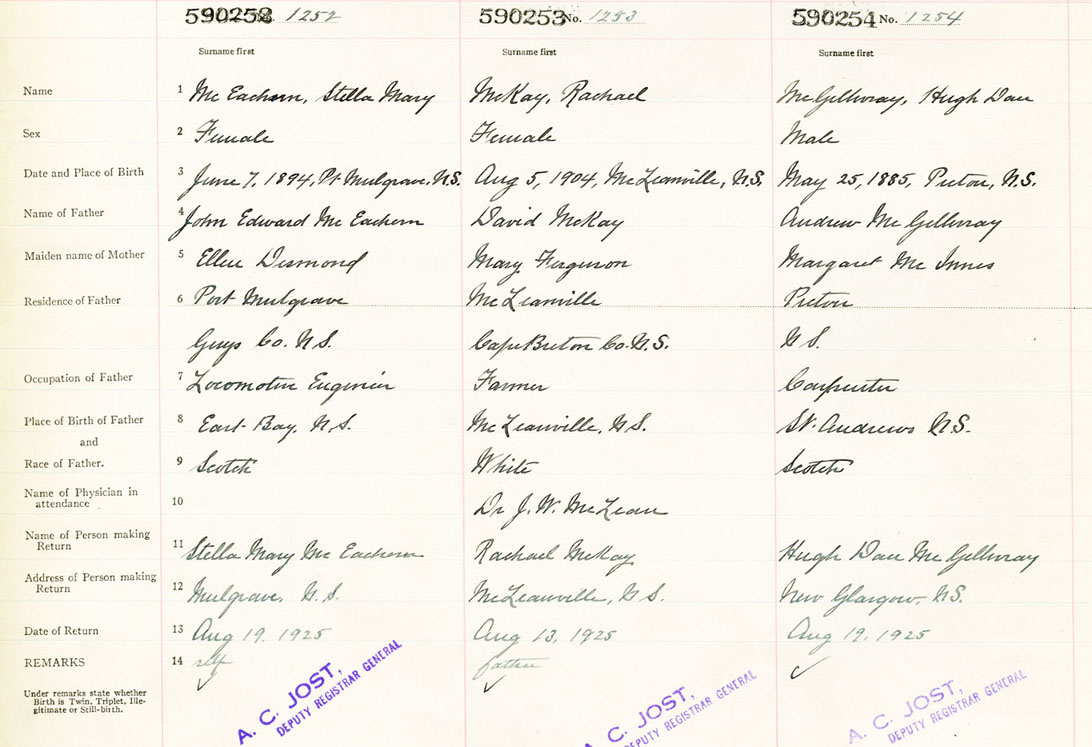 590252 No. 1252 590253 No. 1253 590254 No. 1254
Surname first Surname first Surname first
Name 1 Mc Eachern, Stella Mary McKay, Rachael McGillivray, Hugh Dan
Sex 2 Female Female Male
Date and Place of Birth 3 June 7, 1894, Pt Mulgrave, N.S. Aug 5, 1904, McLeanville, N.S. May 25, 1885, Pictou, N.S.
Name of Father 4 John Edward Mc Eachern David McKay Andrew Mc Gillivray
Maiden name of Mother 5 Ellen Desmond Mary Ferguson Margaret Mc Innes
Residence of Father 6 Port Mulgrave McLeanville Pictou
Guys Co. N.S. Cape Breton Co. N.S. N S.
Occupation of Father 7 Locomotive Engineer Farmer Carpenter
Place of Birth of Father 8 East Bay, N.S. McLeanville, N.S. St. Andrews N.S.
and
Race of Father. 9 Scotch White Scotch
Name of Physician in
attendance 10 Dr J. W. McLean
Name of Person making
Return 11 Stella Mary Mc Eachern Rachael McKay Hugh Dan Mc Gillivray
Address of Person making
Return 12 Mulgrave, N.S. McLeanville, N S. New Glasgow, N.S.
Date of Return 13 Aug 19, 1925 Aug 13, 1925 Aug 19, 1925
REMARKS 14 self father
Under remarks state whether
Birth is Twin, Triplet, Ille-
gitimate or Still-birth.
A. C. JOST, A. C. JOST, A. C. JOST,
DEPUTY REGISTRAR GENERAL DEPUTY REGISTRAR GENERAL DEPUTY REGISTRAR GENERAL